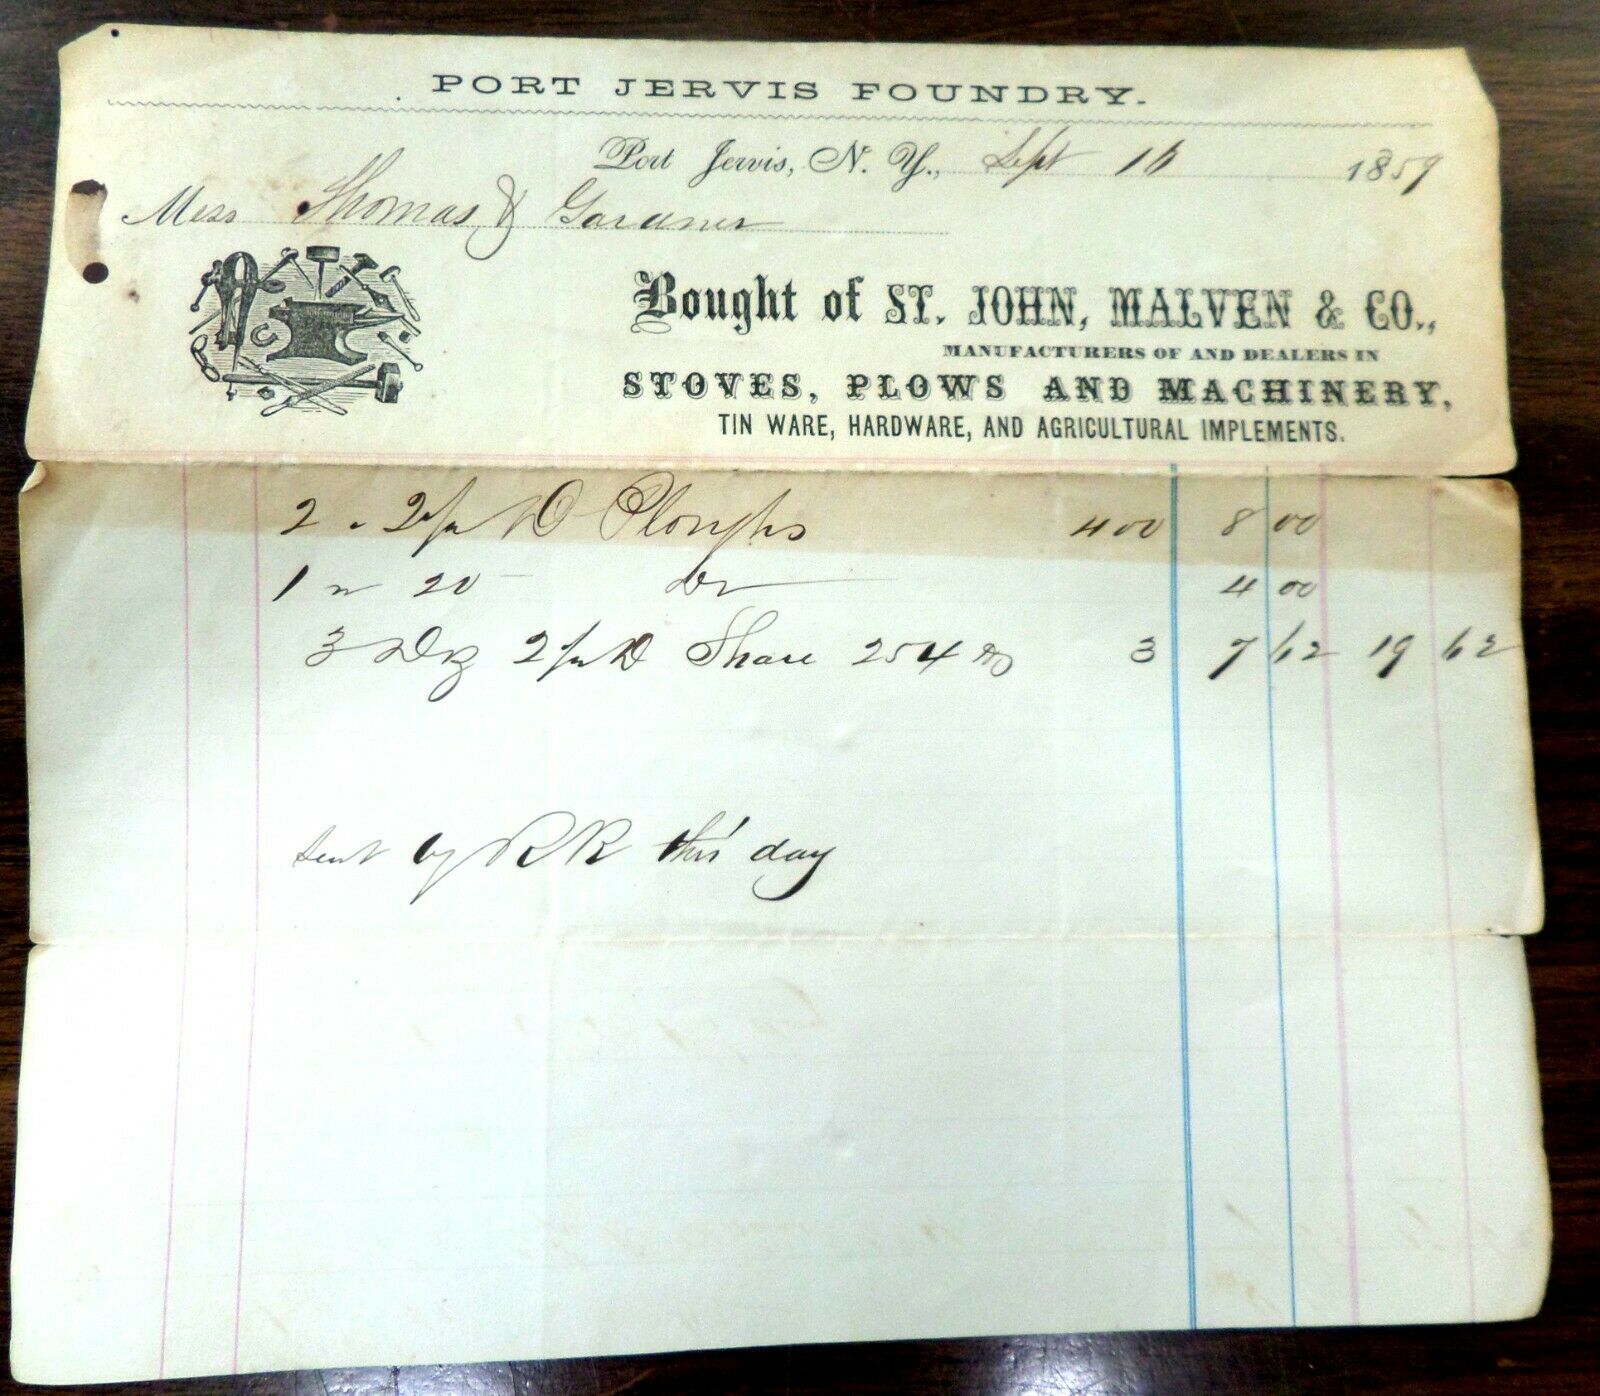 PORT JERVIS FOUNDRY.
Port Jervis, N. Y., Sept 16 1859
Mess Thomas & Gardner
Bought of ST. JOHN, MALVEN & CO.,
MANUFACTURERS OF AND DEALERS IN
STOVES, PLOWS AND MACHINERY,
TIN WARE, HARDWARE, AND AGRICULTURAL IMPLEMENTS.
2 Ploughs 400 8 00
1 20 Do 4 00
3 Dz Share 254 3 7 62 19 62
sent by RR this day